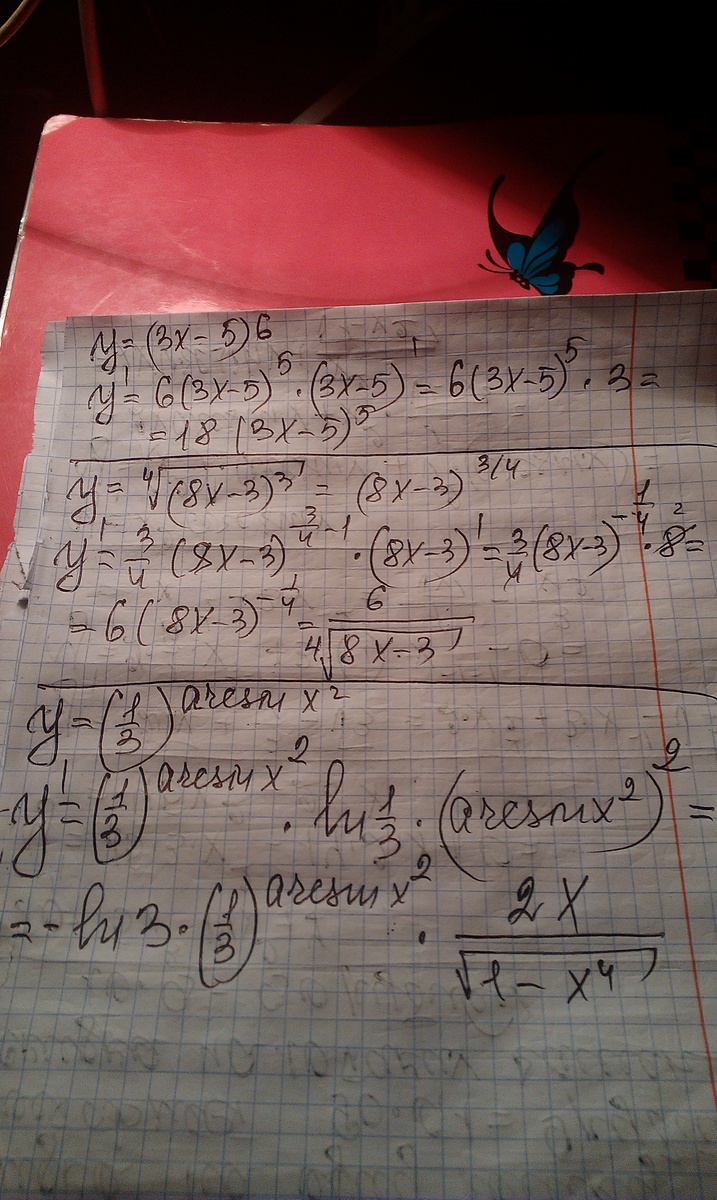 y = (3x-5)6
y' = 6(3x-5)^5 · (3x-5)' = 6(3x-5)^5 · 3 =
= 18 (3x-5)^5
y = ⁴√(8x-3)^3 = (8x-3)^3/4
y' = 3/4 (8x-3)^(3/4 - 1) · (8x-3)' = 3/4 (8x-3)^(-1/4) · 8^2 =
= 6(8x-3)^(-1/4) = 6/⁴√8x-3
y = (1/3)^arcsin x^2
y' = (1/3)^arcsin x^2 · ln 1/3 · (arcsin x^2)^2 =
= - ln 3 · (1/3)^arcsin x^2 · 2x/√1-x^4